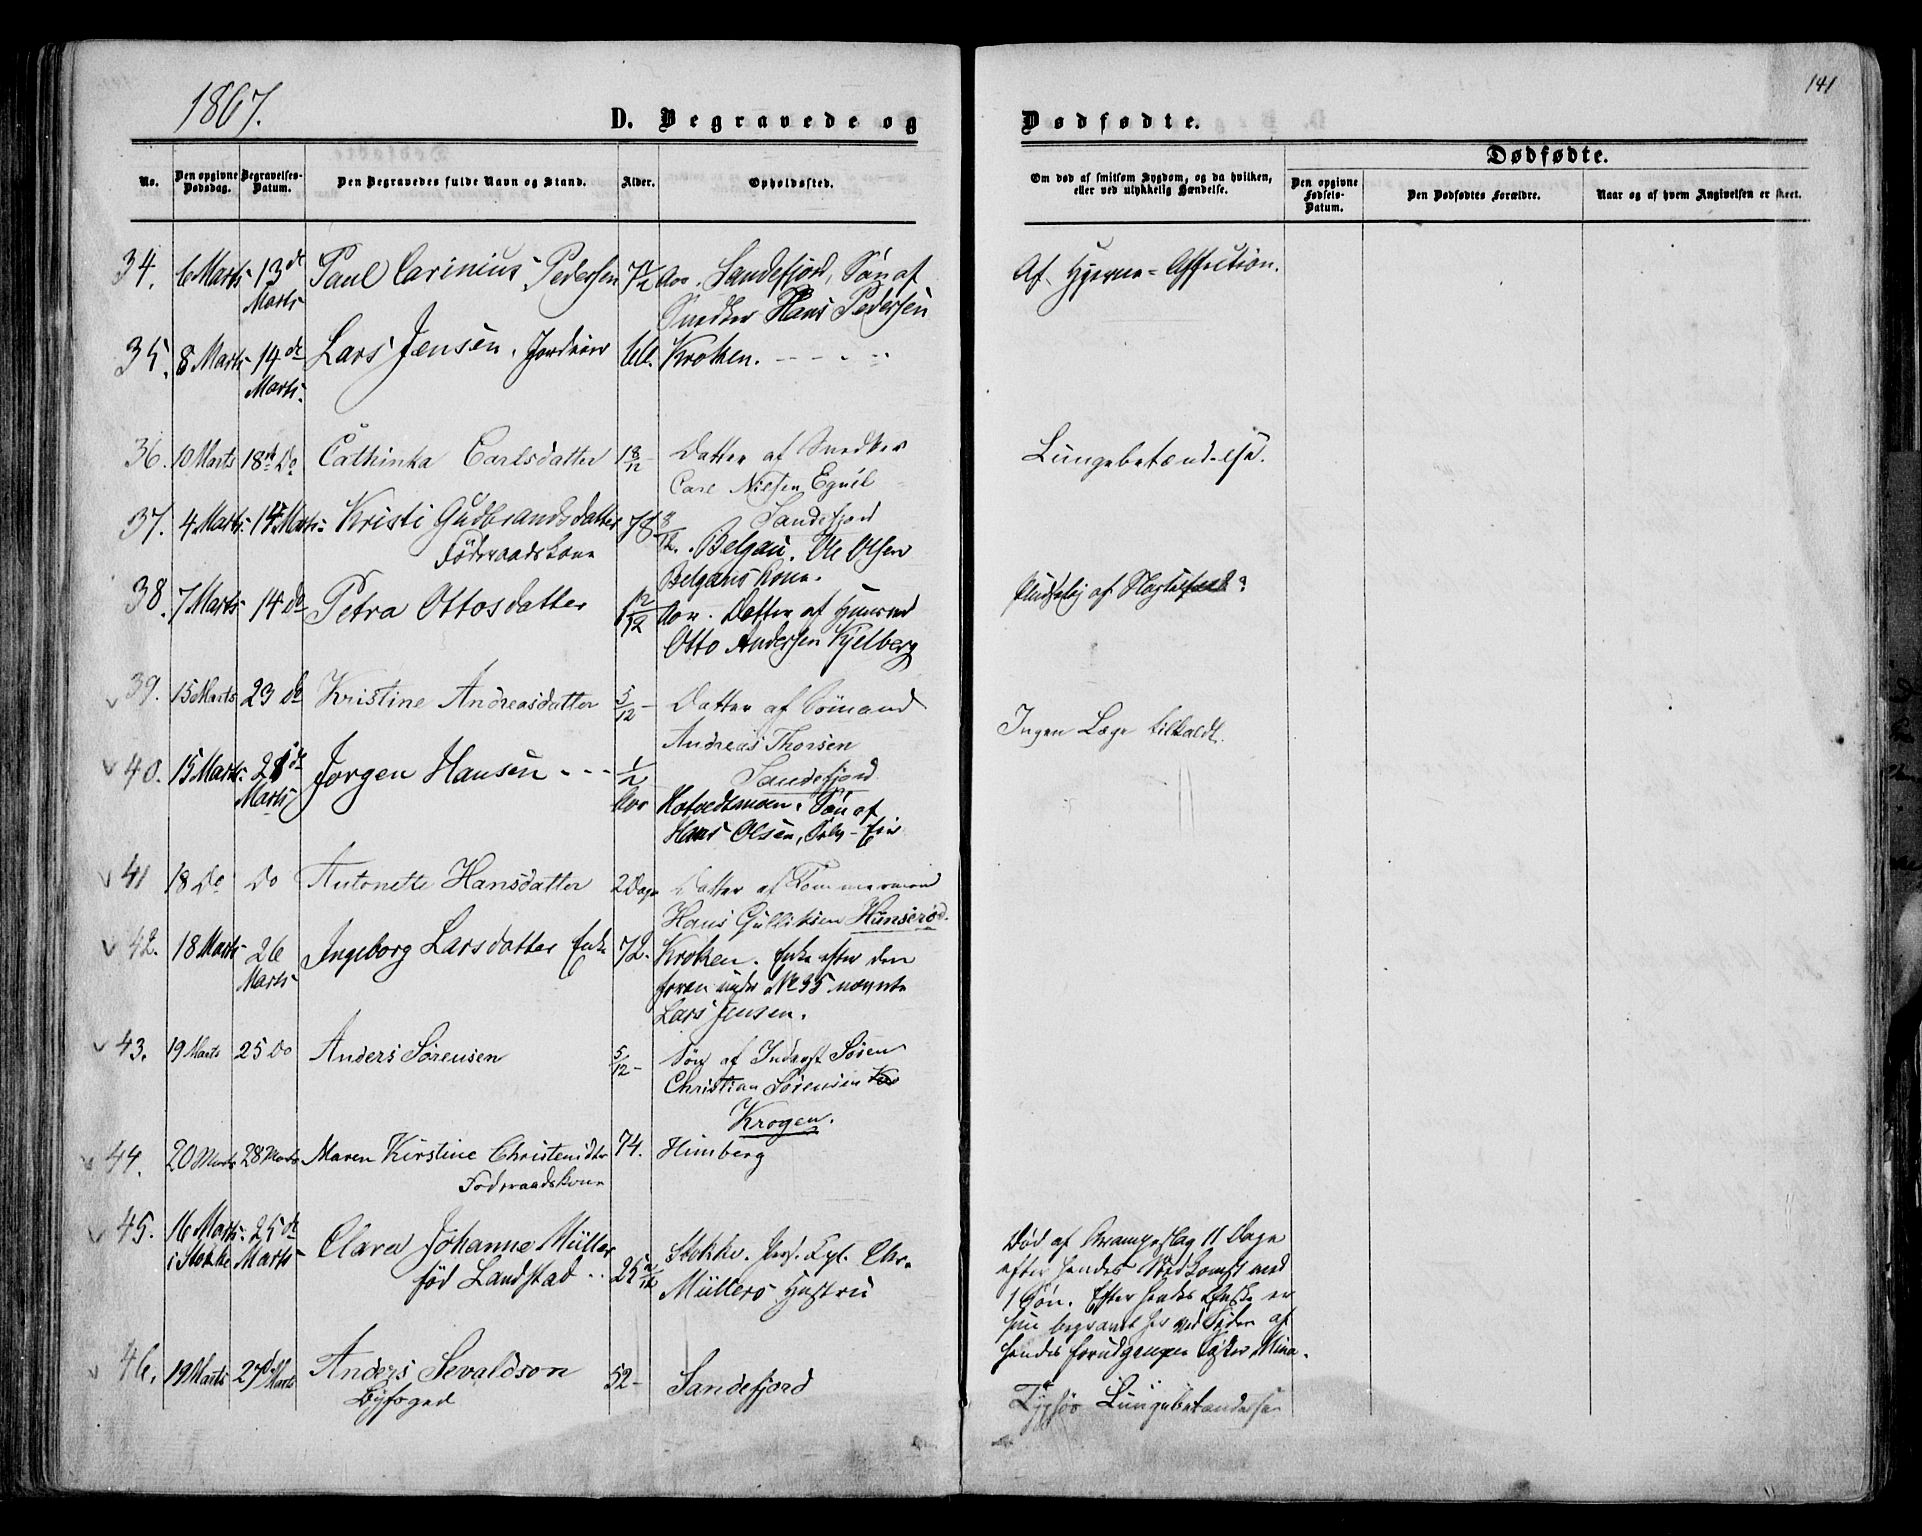 1867.
141
D. Begravede og
Dødfødte.
Dødfødte.
No.
Den opgivne Dødsdag.
Begravelses-Datum.
Den Begravedes fulde Navn og Stand.
Alder.
Opholdssted.
Om død af smitsom Sygdom, og da hvilken,
eller ved ulykkelig Hændelse.
Den opgivne Fødsels-Datum.
Den Dødfødtes Forældre.
Naar og af hvem Angivelsen er skeet.
34. 6 Marts 13de Marts Paul Carinius Pedersen Sandefjord, Søn af
Snedker Hans Pedersen
Af Hjerne-Affection.
35. 8 Marts 14de Marts Lars Jensen. 66. Kroken.
36. 10 Marts 18de Do Cathinka Carlsdatter 1 8/12 Datter af Snedker
Carl Nielsen
Sandefjord
Lungebetændelse.
37. 4 Marts 14 Marts Kristi Gudbrandsdatter 78 8/12. Belgau. Ole Olsen
Føderaadskone Belgaus Kone.
38. 7 Marts 14 do Petra Ottosdatter 12/12 Aar. Datter af Huusmd
Otto Andersen Kjelberg
Pludselig af
39. 15 Marts 23 do Kristine Andreasdatter 5/12 Datter af Sømand
Andreas Thorsen
Sandefjord
Ingen Læge tilkaldt.
40. 15 Marts 21de Marts Jørgen Hansen 1/12 Aar Søn af
Hans Olsen, Selv-Eier
41 18 Do Do Antonette Hansdatter 2 Dage Datter af Tømmermand
Hans Gulliksen Hunserød.
42. 18 Marts 26 Marts Ingeborg Larsdatter Enke 72. Kroken. Enke efter den
foran under No 35 nævnte
Lars Jensen.
43. 19 Marts 25 Do Anders Sørensen 5/12 Søn af Inderst Søren
Christian Sørensen
Krogen.
44. 20 Marts 28 Marts Maren Kirstine Christensdtr 74. Himberg
Føderaadskone
45. 16 Marts i Stokke 25de Marts Clara Johanne Müller
fød Landstad Stokke. Chr.
Müllers Hustru
Død af Krampeslag 11 Dage
efter hendes Nedkomst med
1 Søn. Efter hendes Ønske er
hun begravet her ved Siden af
hendes forudgangne Søster Mina.
46. 19 Marts 27de Marts Anders Sevaldson 52 Sandefjord
Byfoged
Lungebetændelse